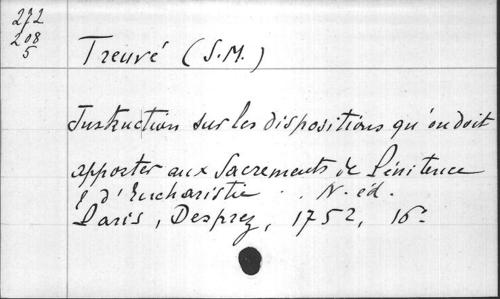 272
208
5
Treuvé (S.M.)
Instruction sur les dispositions qu'on doit
apporter aux Sacrements de Pénitence
& d'Eucharistie . . N. éd.
Paris, Desprez, 1752, 16.º